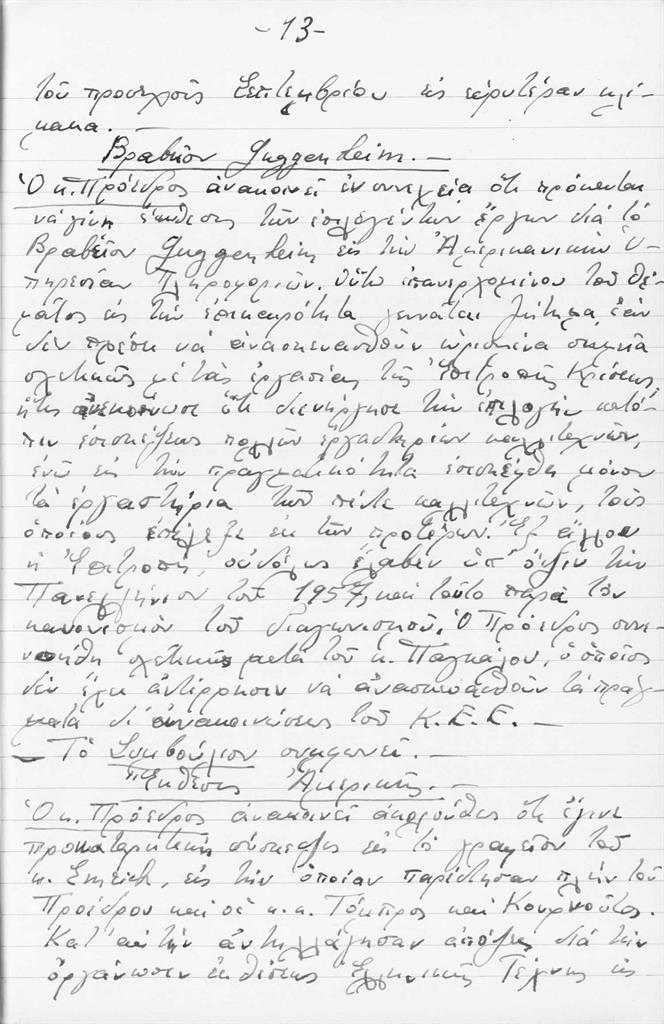 -13-
τοῦ προσεχοῦς Σεπτεμβρίου εἰς εὐρυτέραν κλί-
μακα. —
Βραβεῖον Guggenheim. —
Ὁ κ. Πρόεδρος ἀνακοινεῖ ἐν συνεχείᾳ ὅτι πρόκειται
νὰ γίνῃ ἔκθεσις τῶν ἐπιλεγέντων ἔργων διὰ τὸ
Βραβεῖον Guggenheim εἰς τὴν Ἀμερικανικὴν Ὑ-
πηρεσίαν Πληροφοριῶν. Οὕτω ἐπανερχομένου τοῦ θέ-
ματος εἰς τὴν ἐπικαιρότητα γεννᾶται ζήτημα, ἐὰν
δὲν πρέπει νὰ ἀνασκευασθοῦν ὡρισμένα σημεῖα
σχετικῶς μὲ τὰς ἐργασίας τῆς Ἐπιτροπῆς Κρίσεως,
ἥτις ἀνεκοίνωσε ὅτι διενήργησε τὴν ἐπιλογὴν κατό-
πιν ἐπισκέψεως πολλῶν ἐργαστηρίων καλλιτεχνῶν,
ἐνῶ εἰς τὴν πραγματικότητα ἐπεσκέφθη μόνον
τὰ ἐργαστήρια τῶν πέντε καλλιτεχνῶν, τοὺς
ὁποίους ἐπέλεξε ἐκ τῶν προτέρων. Ἐξ ἄλλου
ἡ Ἐπιτροπή, οὐδόλως ἔλαβεν ὑπ' ὄψιν τὴν
Πανελλήνιον τοῦ 1957, καὶ τοῦτο παρὰ τὸν
κανονισμὸν τοῦ διαγωνισμοῦ. Ὁ Πρόεδρος συνε-
νοήθη σχετικῶς μετὰ τοῦ κ. Παγκάλου, ὁ ὁποῖος
δὲν ἔχει ἀντίρρησιν νὰ ἀνασκευασθοῦν τὰ πράγ-
ματα δι' ἀνακοινώσεως τοῦ Κ.Ε.Ε. —
— Τὸ Συμβούλιον συμφωνεῖ. —
Ἔκθεσις Ἀμερικῆς. —
Ὁ κ. Πρόεδρος ἀνακοινεῖ ἀκολούθως ὅτι ἔγινε
προκαταρκτικὴ σύσκεψις εἰς τὸ γραφεῖον τοῦ
κ. Emerich, εἰς τὴν ὁποίαν παρέστησαν πλὴν τοῦ
Προέδρου καὶ οἱ κ.κ. Τόμπρος καὶ Κουρνοῦτος.
Κατ' αὐτὴν ἀντηλλάγησαν ἀπόψεις διὰ τὴν
ὀργάνωσιν ἐκθέσεως Ἑλληνικῆς Τέχνης εἰς